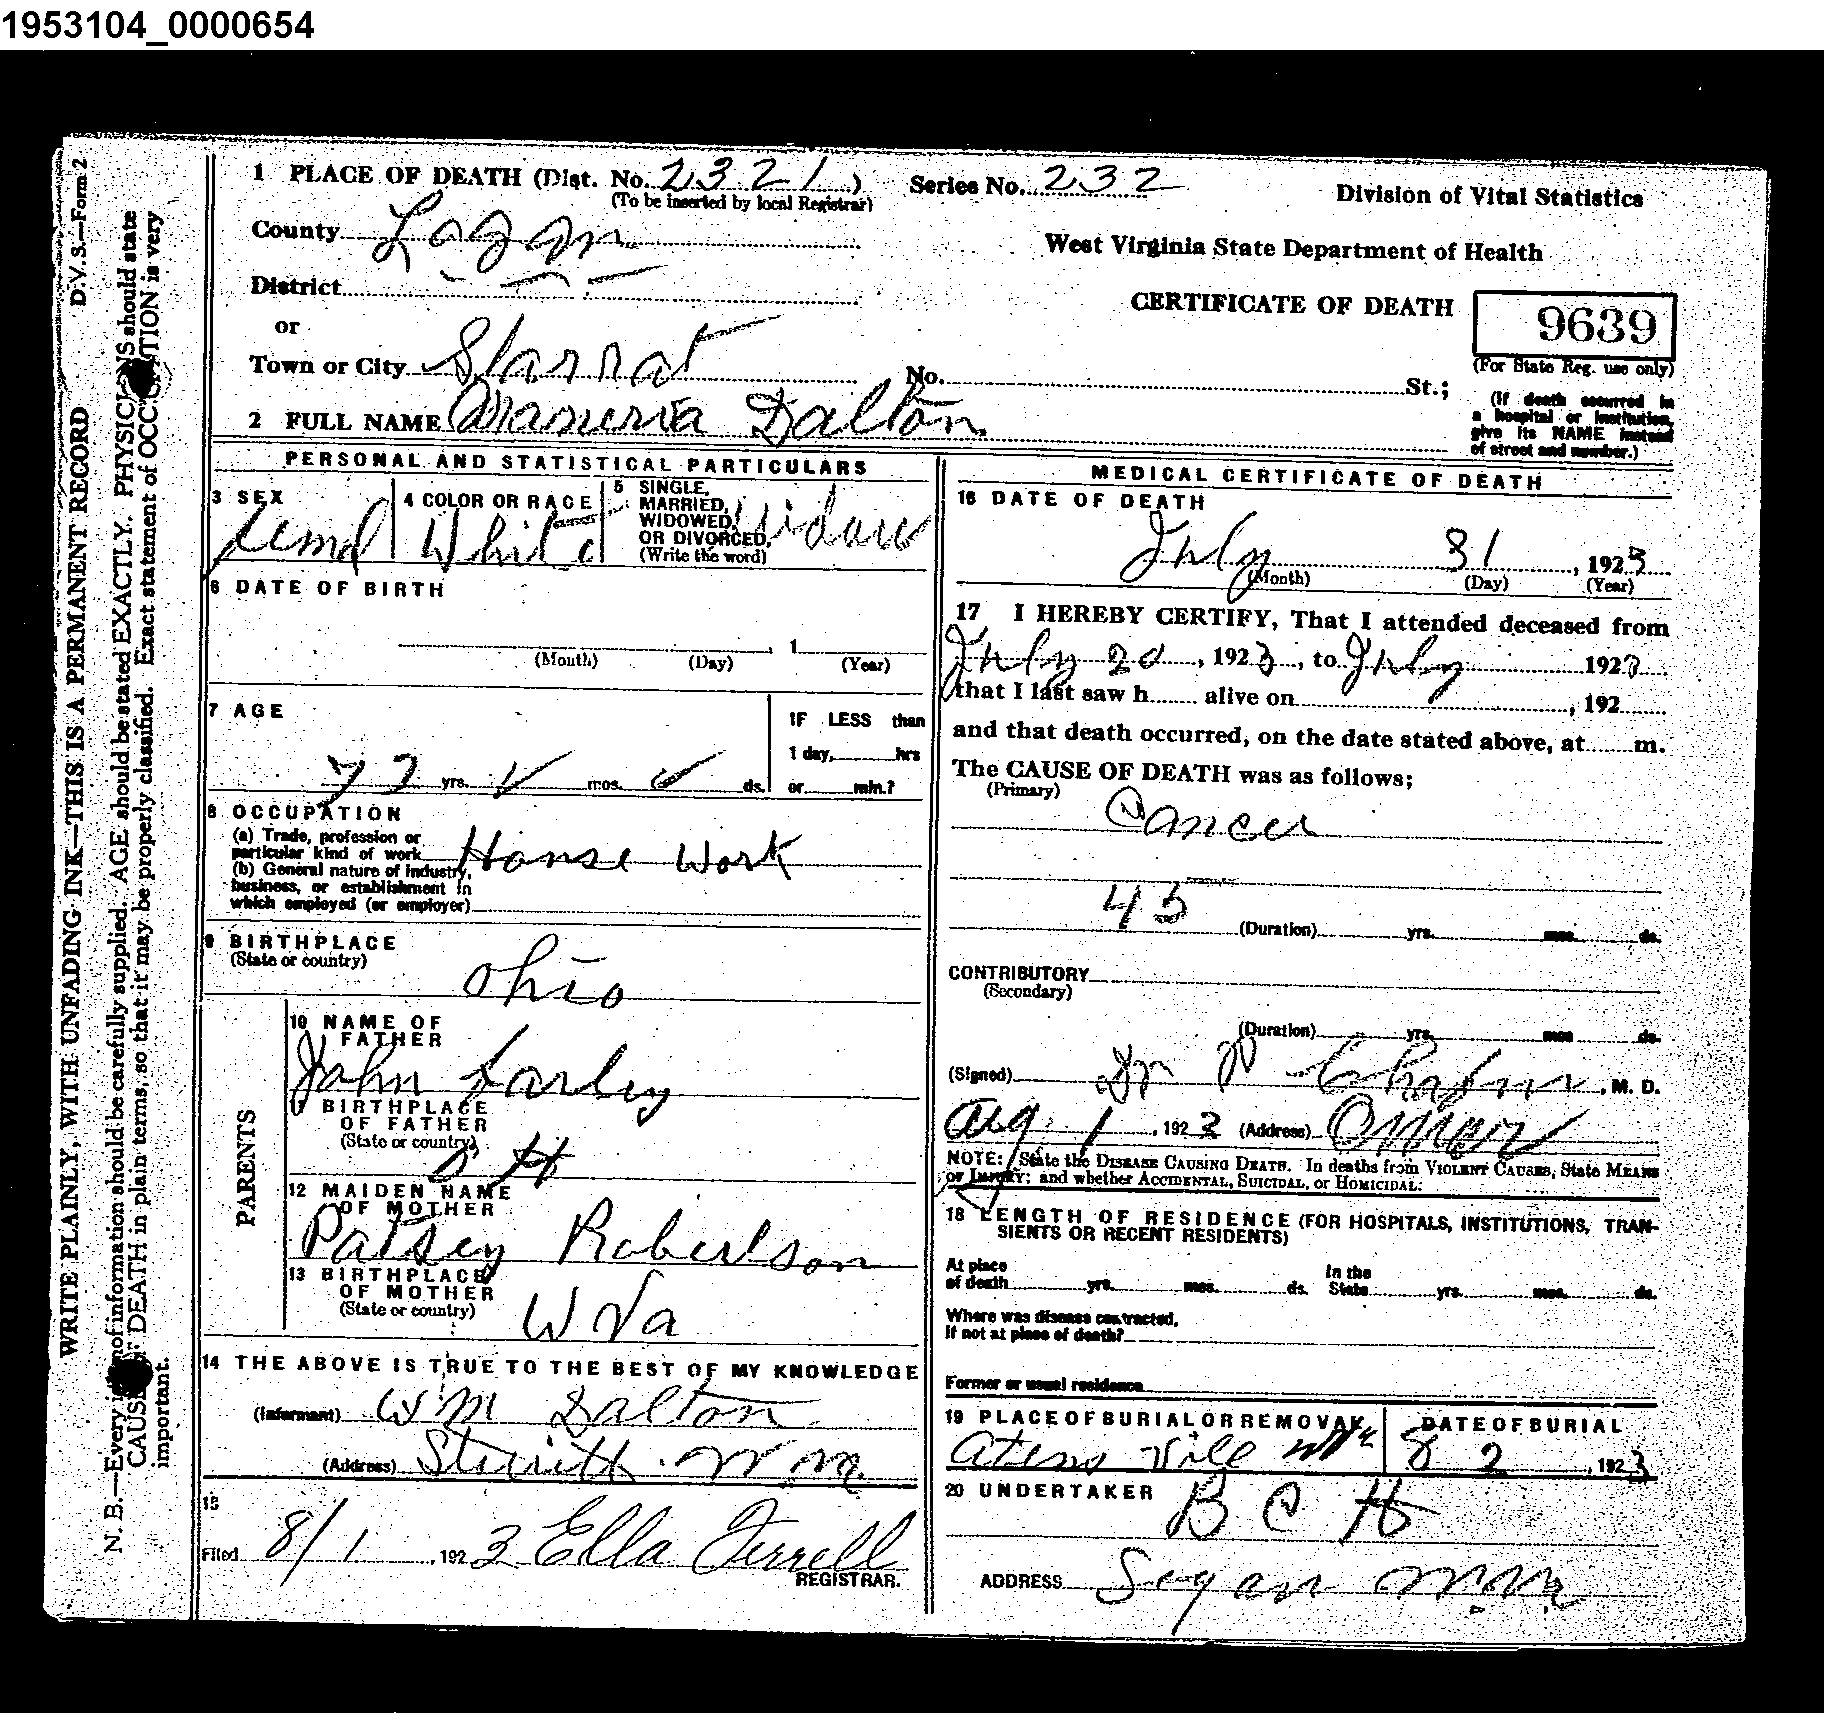 1953104_0000654
D.V.S.—Form 2
WRITE PLAINLY, WITH UNFADING INK—THIS IS A PERMANENT RECORD
N. B.—Every of information should be carefully supplied. AGE should be stated EXACTLY. PHYSICIANS should state
CAUSE OF DEATH in plain terms, so that it may be properly classified. Exact statement of OCCUPATION is very
important.
1 PLACE OF DEATH (Dist. No. 2321)
(To be inserted by local Registrar)
Series No. 232
Division of Vital Statistics
County Logan
West Virginia State Department of Health
District
or
CERTIFICATE OF DEATH
9639
(For State Reg. use only)
Town or City Starrat
No. St.;
(If death occurred in
a hospital or institution,
give its NAME instead
of street and number.)
2 FULL NAME Dalton
PERSONAL AND STATISTICAL PARTICULARS
3 SEX
Femal
4 COLOR OR RACE
White
5 SINGLE,
MARRIED,
WIDOWED,
OR DIVORCED,
(Write the word)
Widow
6 DATE OF BIRTH
1
(Month) (Day) (Year)
7 AGE
yrs. mos. ds.
IF LESS than
1 day, hrs
or min.?
8 OCCUPATION
(a) Trade, profession or
particular kind of work House Work
(b) General nature of industry,
business, or establishment in
which employed (or employer)
9 BIRTHPLACE
(State or country)
Ohio
PARENTS
10 NAME OF
FATHER
John Farley
11 BIRTHPLACE
OF FATHER
(State or country)
12 MAIDEN NAME
OF MOTHER
Patsey Robertson
13 BIRTHPLACE
OF MOTHER
(State or country)
W Va
14 THE ABOVE IS TRUE TO THE BEST OF MY KNOWLEDGE
(Informant) Wm Dalton
(Address)
15
Filed 8/1, 1923 Ella Ferrell
REGISTRAR.
MEDICAL CERTIFICATE OF DEATH
16 DATE OF DEATH
July 31, 1923
(Month) (Day) (Year)
17 I HEREBY CERTIFY, That I attended deceased from
July 20, 1923, to July 1923
that I last saw h alive on , 192
and that death occurred, on the date stated above, at m.
The CAUSE OF DEATH was as follows;
(Primary)
Cancer
45
(Duration) yrs. mos. ds.
CONTRIBUTORY
(Secondary)
(Duration) yrs. mos. ds.
(Signed) Dr , M. D.
Aug. 1, 1923 (Address) Omar
NOTE: State the DISEASE CAUSING DEATH. In deaths from VIOLENT CAUSES, State MEANS
OF INJURY; and whether ACCIDENTAL, SUICIDAL, or HOMICIDAL.
18 LENGTH OF RESIDENCE (FOR HOSPITALS, INSTITUTIONS, TRAN-
SIENTS OR RECENT RESIDENTS)
At place
of death yrs. mos. ds.
In the
State yrs. mos. ds.
Where was disease contracted,
If not at place of death?
Former or usual residence
19 PLACE OF BURIAL OR REMOVAL
DATE OF BURIAL
8 2, 1923
20 UNDERTAKER
B C H
ADDRESS